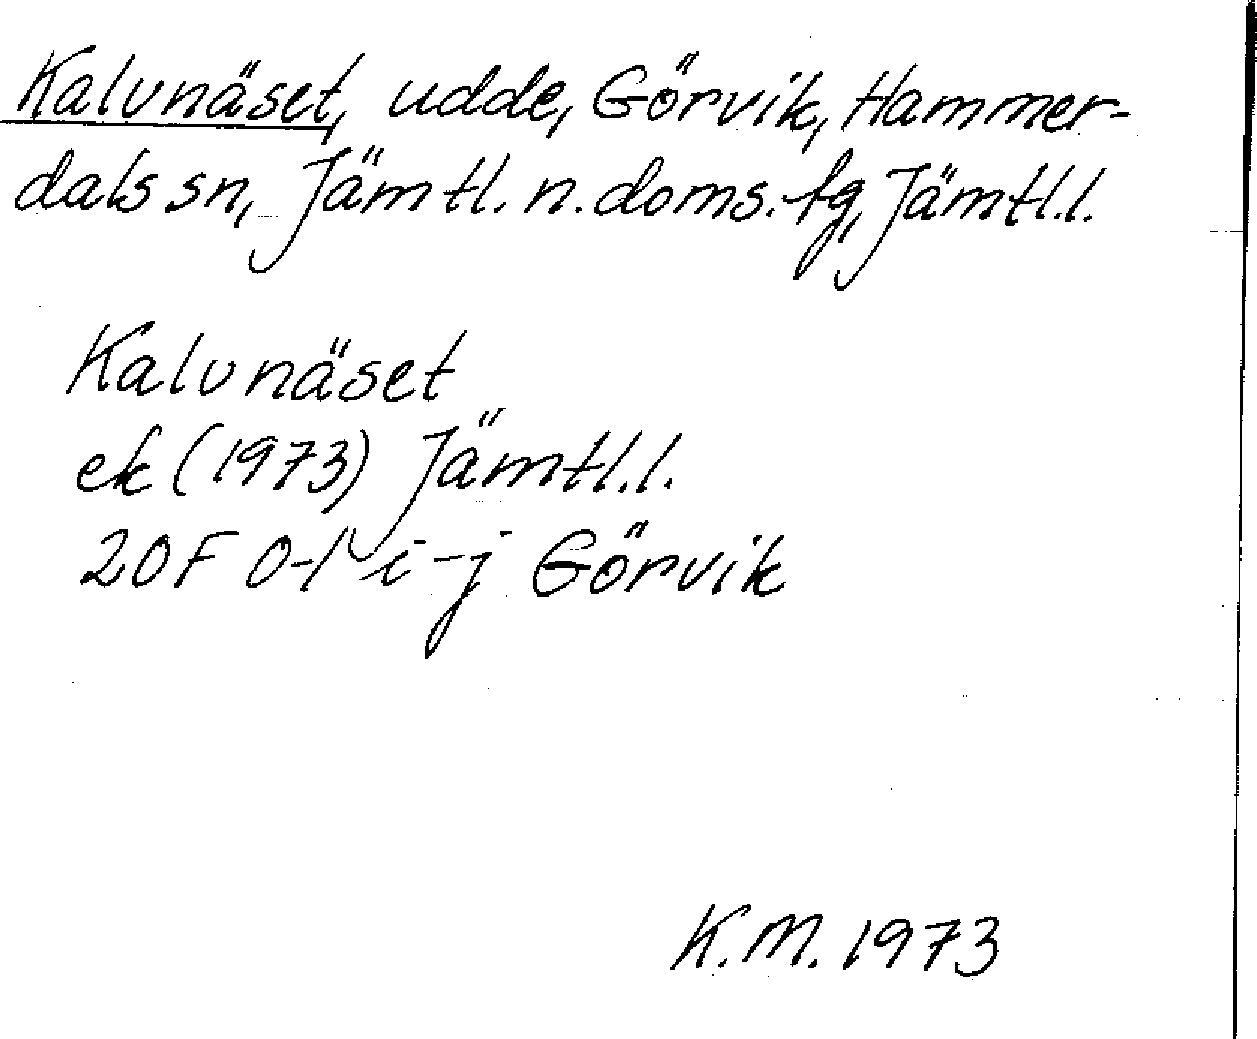 Kalvnäset, udde, Görvik, Hammer-
dals sn, Jämtl. n. doms. fg, Jämtl.l.
Kalvnäset
ek (1973) Jämtl.l.
20F 0-1 i-j Görvik
K.M. 1973